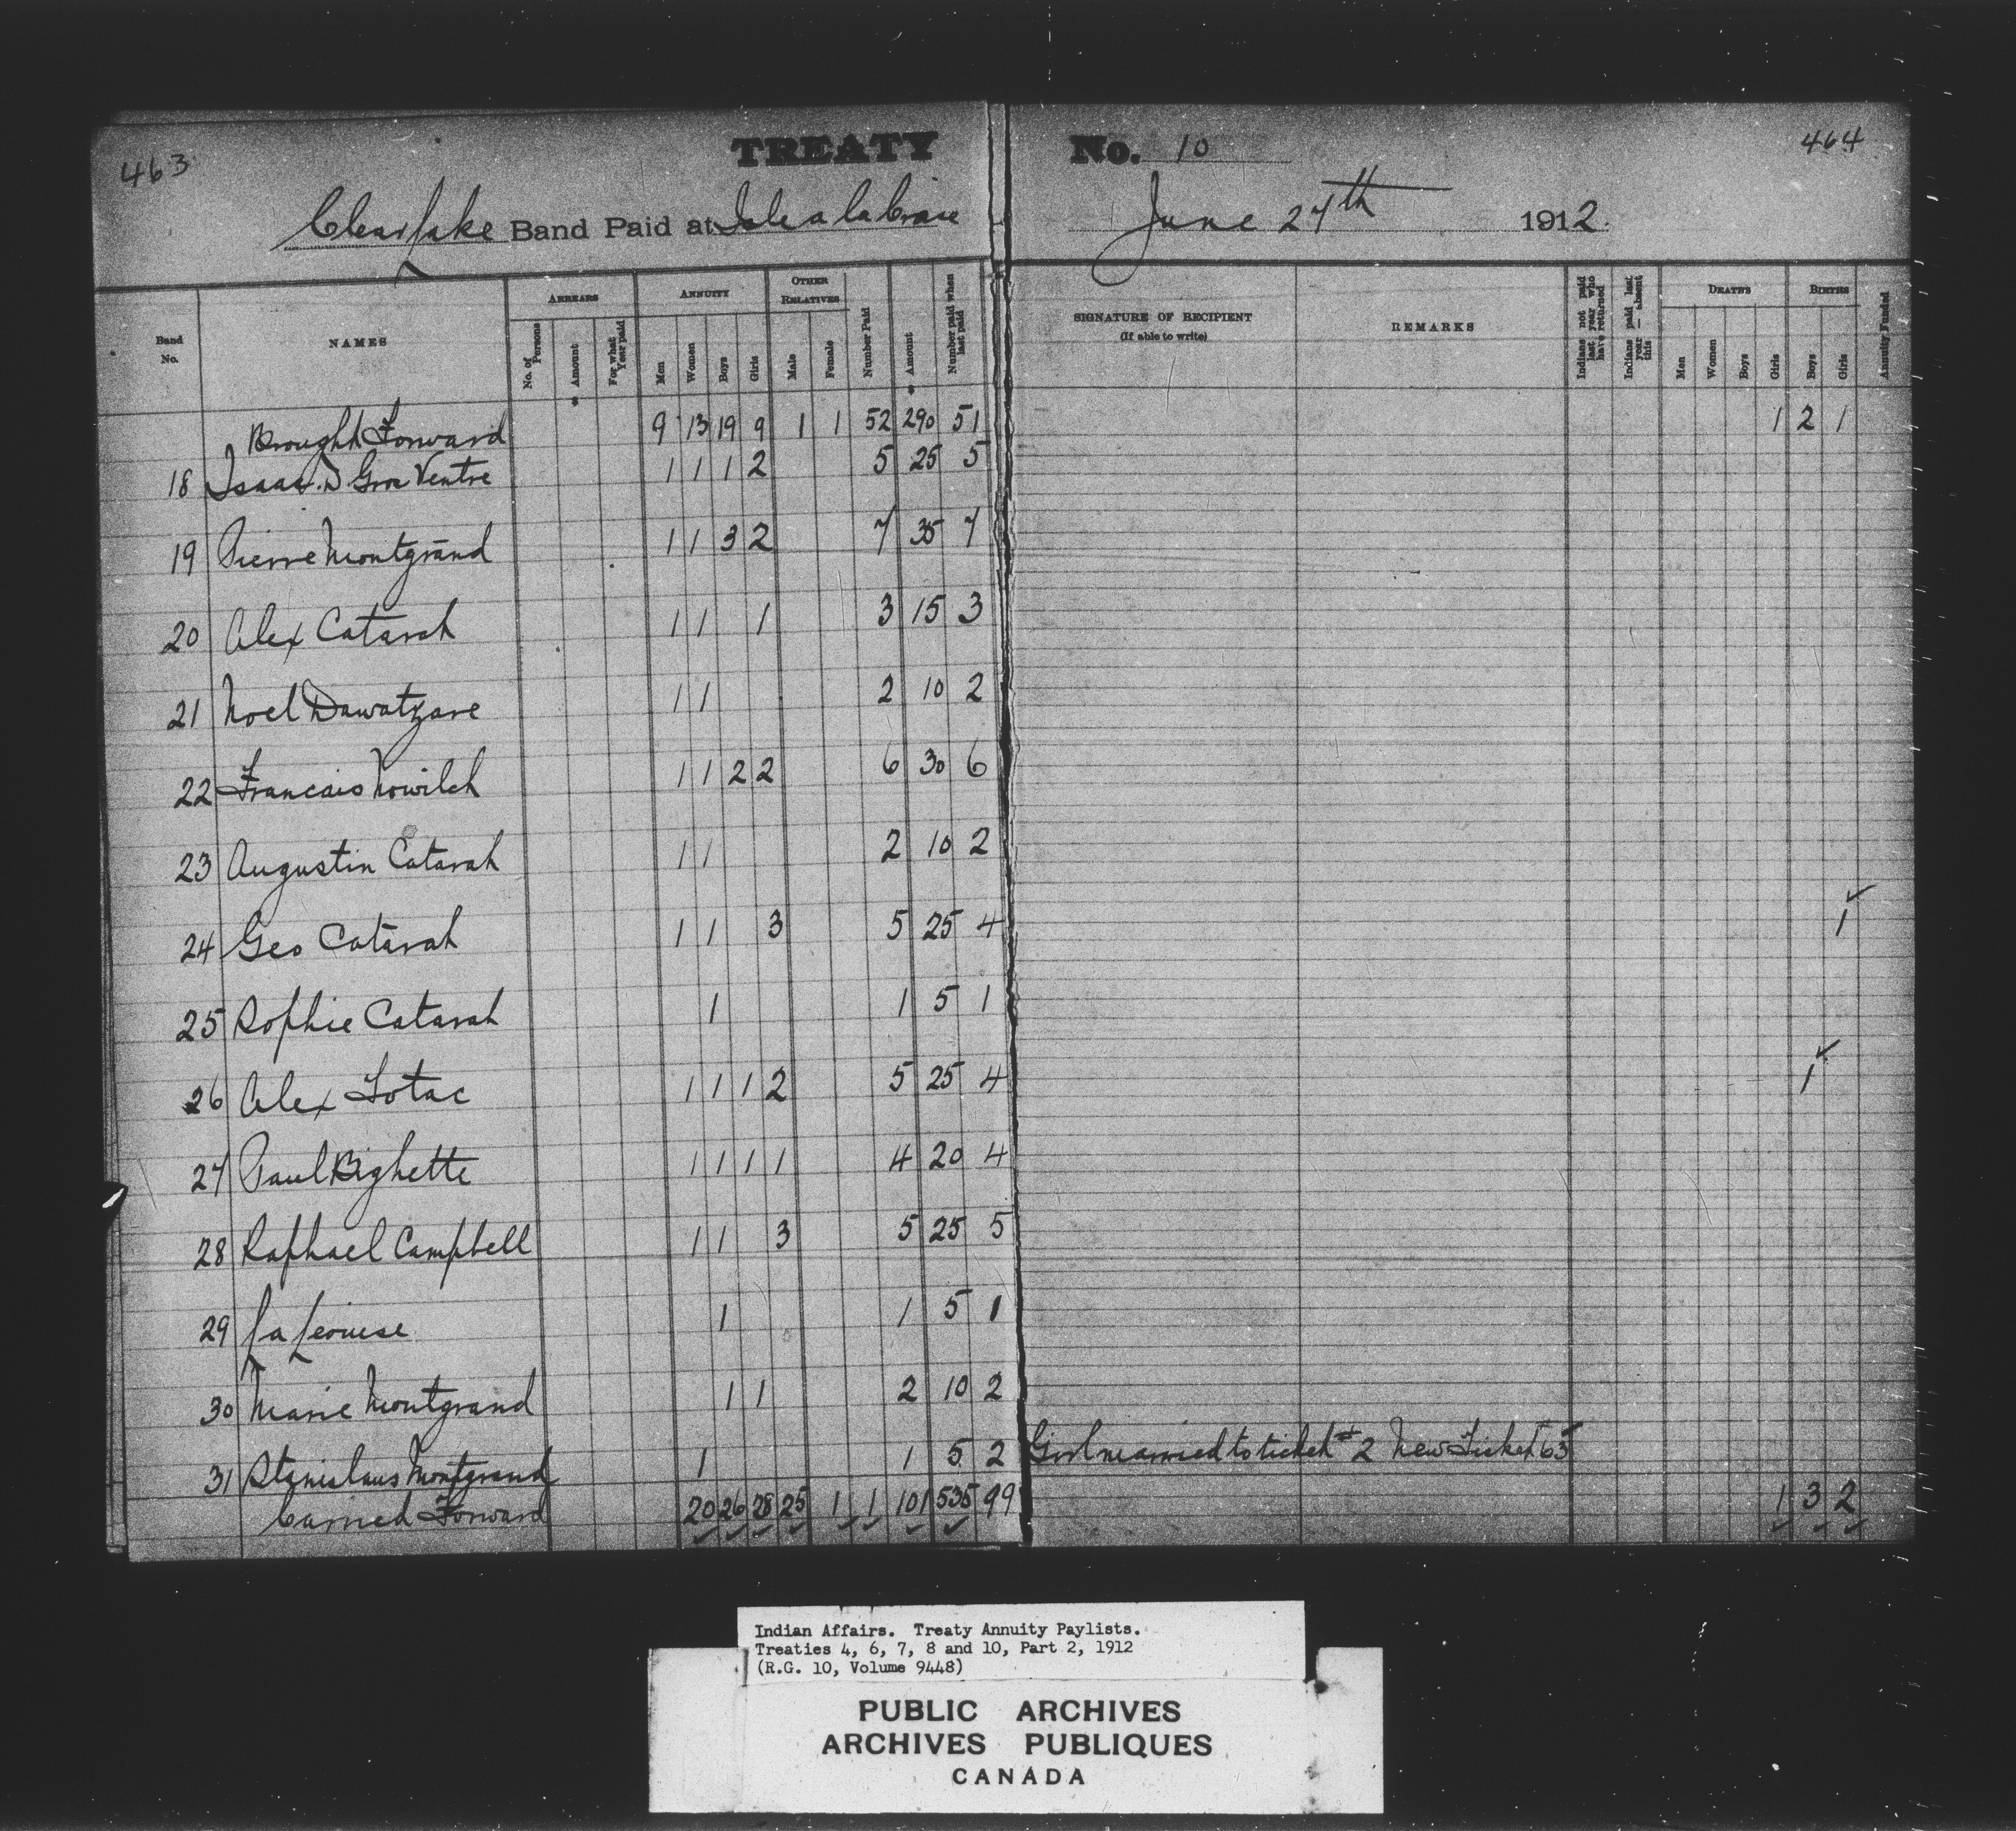 463
TREATY No. 10
464
Clear Lake Band Paid at Isle a la Crosse June 27th 1912.
Band No.
NAMES
ARREARS
No. of Persons
Amount
For what Year paid
ANNUITY
Men
Women
Boys
Girls
OTHER RELATIVES
Male
Female
Number Paid
Amount
Number paid when last paid
SIGNATURE OF RECIPIENT
(If able to write)
REMARKS
Indians not paid last year who have returned
Indians paid last year — absent this
DEATHS
Men
Women
Boys
Girls
BIRTHS
Boys
Girls
Annuity Funded
Brought Forward 9 13 19 9 1 1 52 290 51 1 2 1
18 Isaac D Gros Ventre 1 1 1 2 5 25 5
19 Pierre Montgrand 1 1 3 2 7 35 7
20 Alex Catarah 1 1 1 3 15 3
21 Noel Dawatzare 1 1 2 10 2
22 Francais Nowilch 1 1 2 2 6 30 6
23 Augustin Catarah 1 1 2 10 2
24 Geo Catarah 1 1 3 5 25 4 1
25 Sophie Catarah 1 1 5 1
26 Alex Lotac 1 1 1 2 5 25 4 1
27 Paul Bighette 1 1 1 1 4 20 4
28 Raphael Campbell 1 1 3 5 25 5
29 La Leouise 1 1 5 1
30 Marie Montgrand 1 1 2 10 2
31 Stanislaus Montgrand 1 1 5 2 Girl married to ticket # 2 New Ticket 65
Carried Forward 20 26 28 25 1 1 101 535 99 1 3 2
Indian Affairs. Treaty Annuity Paylists.
Treaties 4, 6, 7, 8 and 10, Part 2, 1912
(R.G. 10, Volume 9448)
PUBLIC ARCHIVES
ARCHIVES PUBLIQUES
CANADA